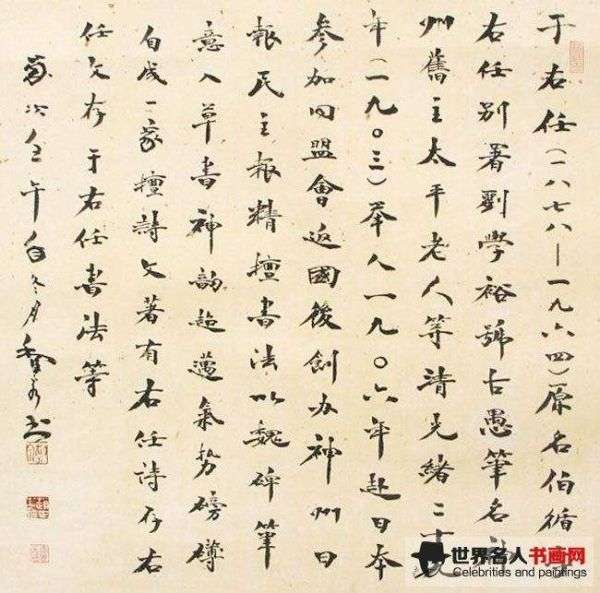 于右任(一八七八—一九六四)原名伯循字
右任别署劉學裕號古愚筆名神
州舊主太平老人等清光緒二十九
年(一九〇三)举人一九〇六年赴日本
参加同盟會返國後創办神州日
報民主報精擅書法以魏碑筆
意入草書神韵超邁氣势磅礴
自成一家擅詩文著有右任詩存右
任文存于右任書法等
歲次壬午年冬月
世界名人书画网
Celebrities and paintings